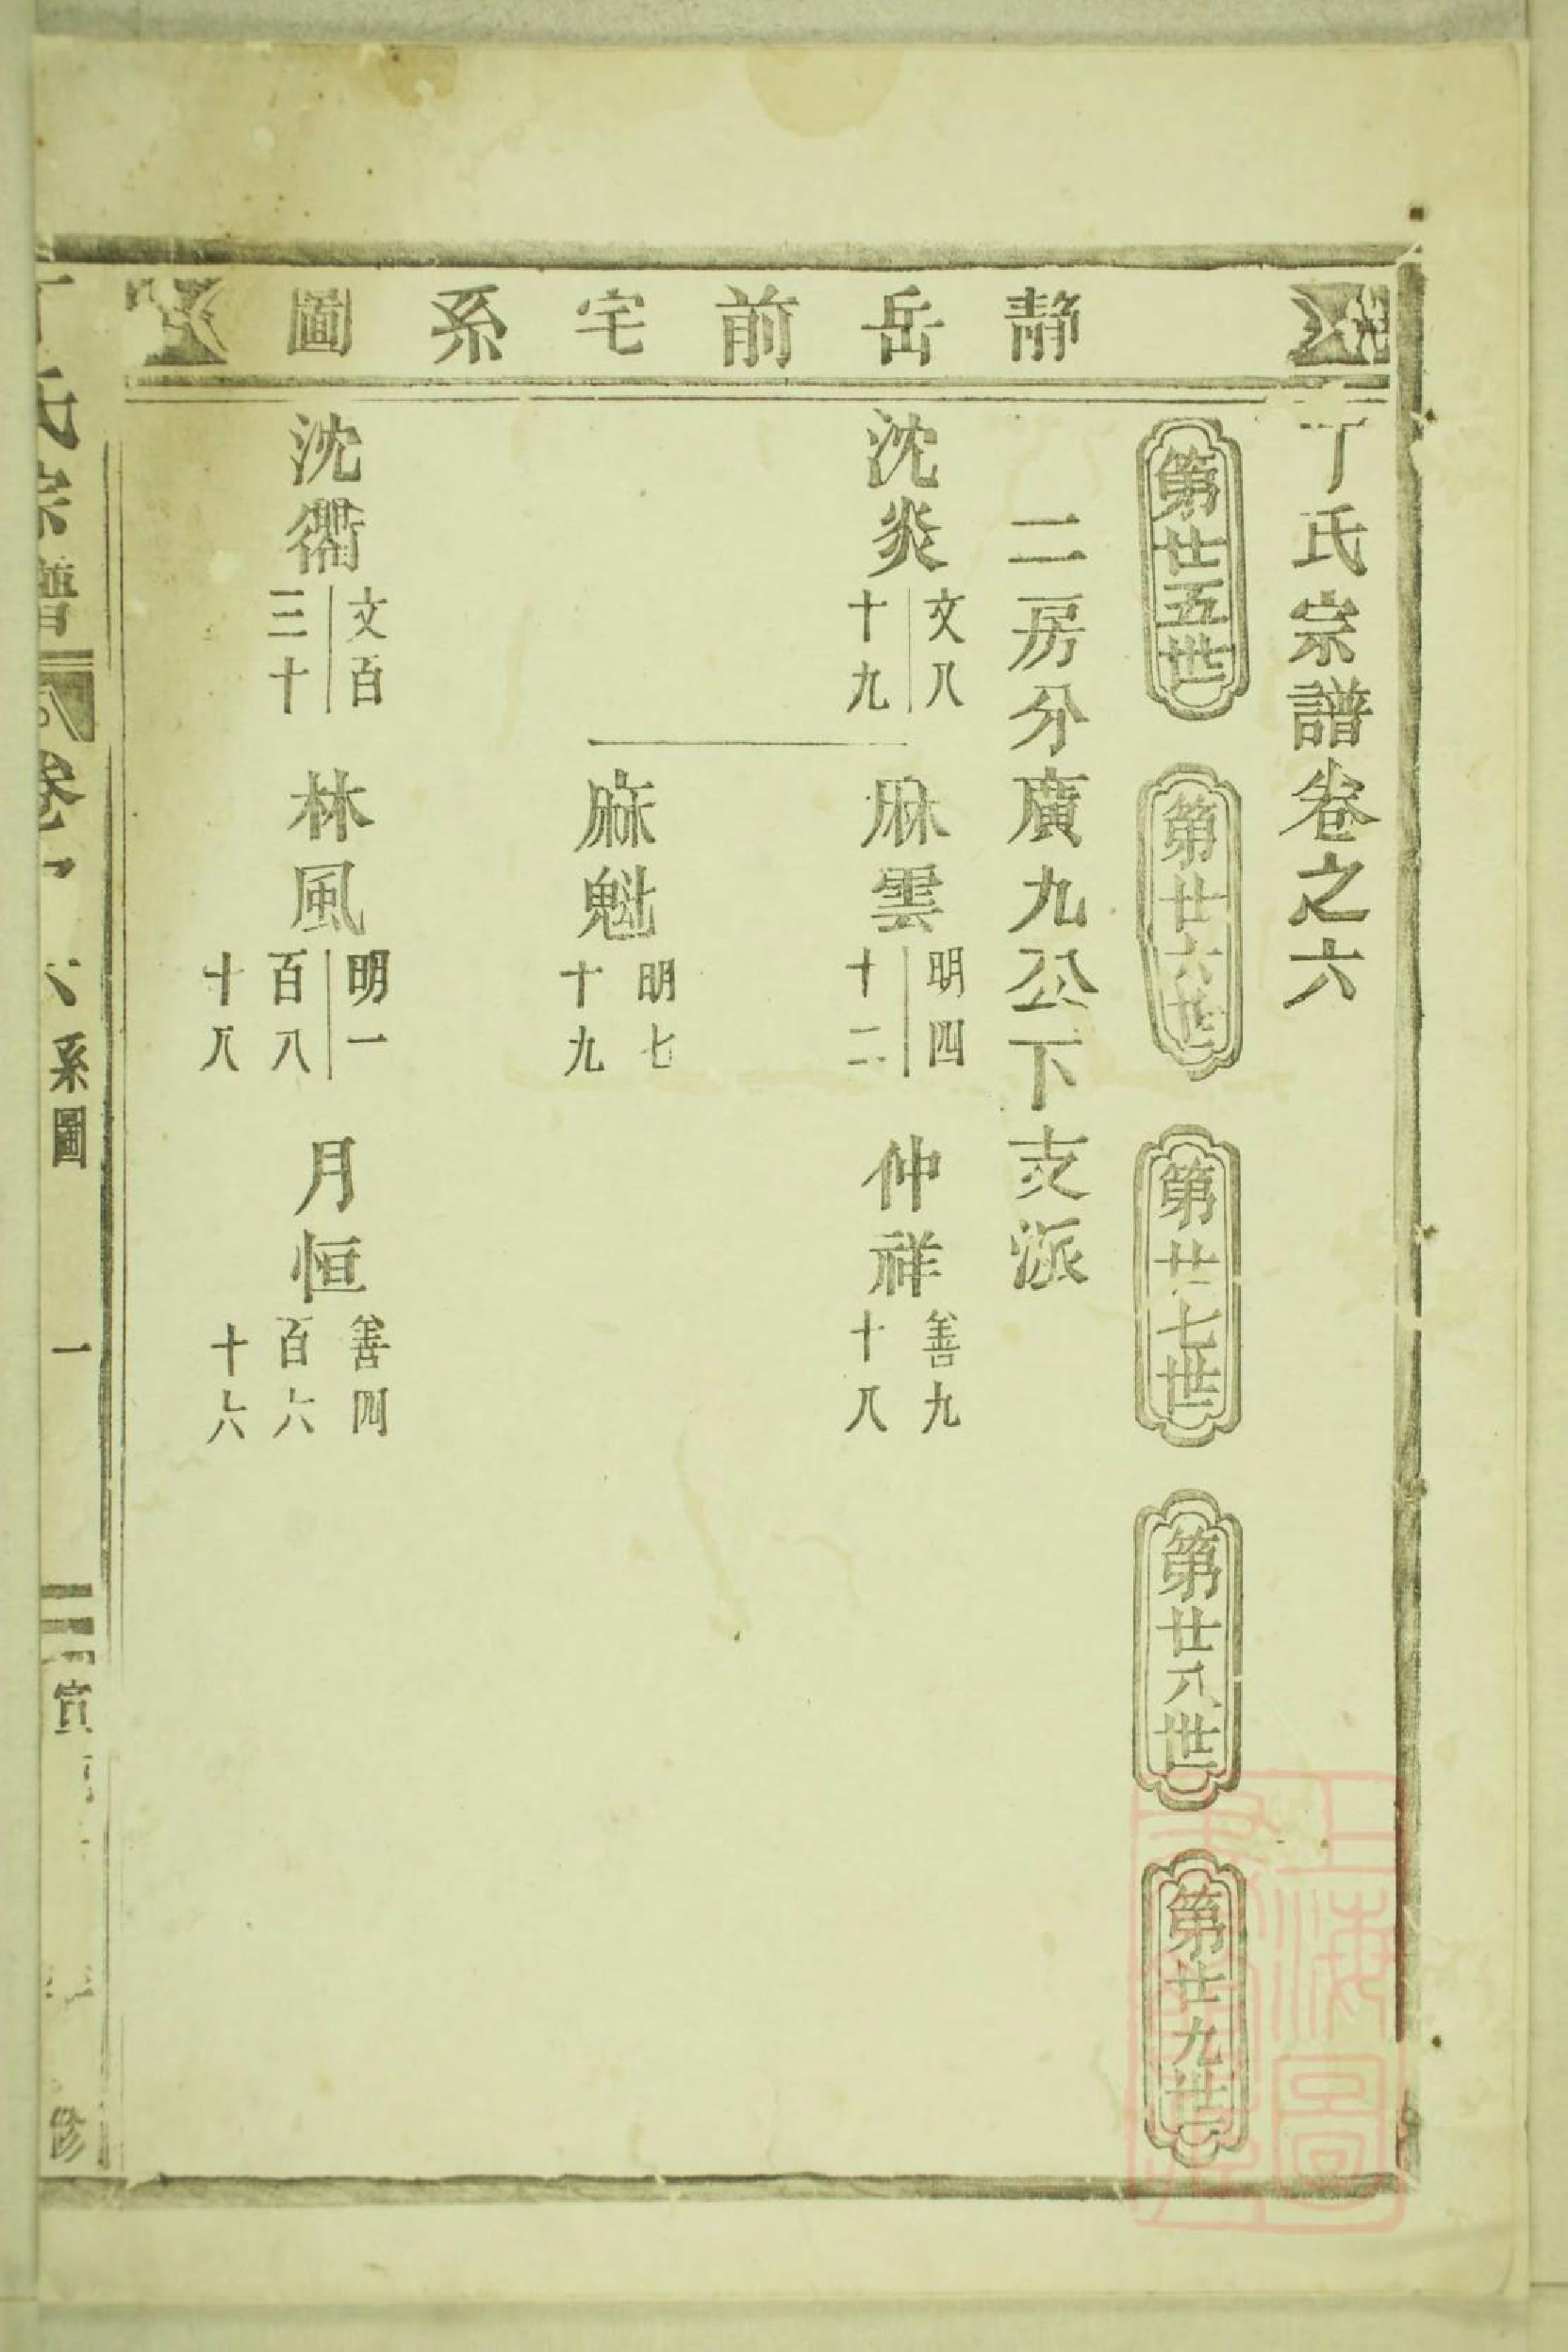 靜岳前宅系圖
丁氏宗譜卷之六
第廿五世
第廿六世
第廿七世
第廿八世
第廿九世
二房分廣九公下支派
沈炎
文八
十九
麻雲
明四
十二
仲祥
善九
十八
麻魁
明七
十九
沈衢
文百
三十
林風
明一
百八
十八
月恒
善四
百六
十六
丁氏宗譜
卷六
系圖
一
宣
修
上海圖
書館藏